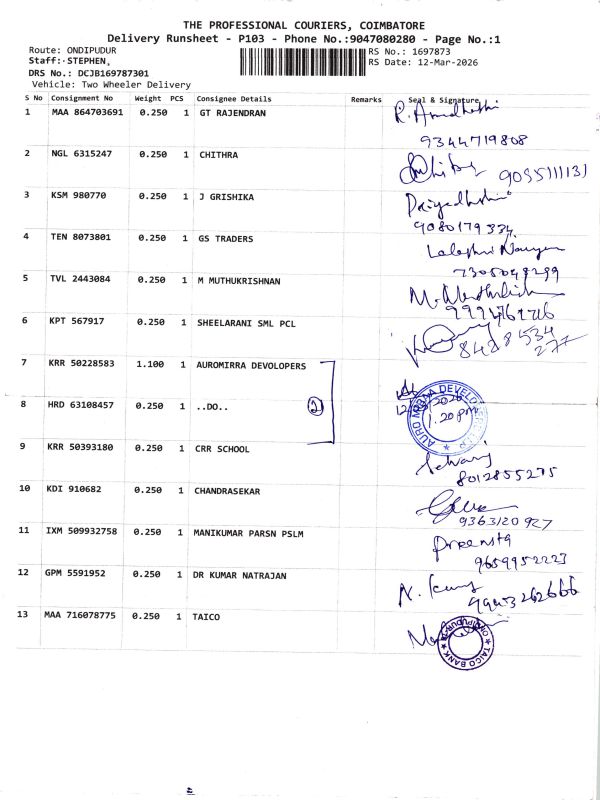 THE PROFESSIONAL COURIERS, COIMBATORE
Delivery Runsheet - P103 - Phone No.:9047080280 - Page No.:1
Route: ONDIPUDUR RS No.: 1697873
Staff: STEPHEN, RS Date: 12-Mar-2026
DRS No.: DCJB169787301
Vehicle: Two Wheeler Delivery
S No Consignment No Weight PCS Consignee Details Remarks Seal & Signature
1 MAA 864703691 0.250 1 GT RAJENDRAN
9344719808
2 NGL 6315247 0.250 1 CHITHRA
9035111131
3 KSM 980770 0.250 1 J GRISHIKA
9080179334
4 TEN 8073801 0.250 1 GS TRADERS
5 TVL 2443084 0.250 1 M MUTHUKRISHNAN
6 KPT 567917 0.250 1 SHEELARANI SML PCL
8428534
277
7 KRR 50228583 1.100 1 AUROMIRRA DEVOLOPERS
8 HRD 63108457 0.250 1 ..DO.. 2
1.20 pm
9 KRR 50393180 0.250 1 CRR SCHOOL
8012855275
10 KDI 910682 0.250 1 CHANDRASEKAR
9363120927
11 IXM 509932758 0.250 1 MANIKUMAR PARSN PSLM
9659952223
12 GPM 5591952 0.250 1 DR KUMAR NATRAJAN
13 MAA 716078775 0.250 1 TAICO
TAICO BANK